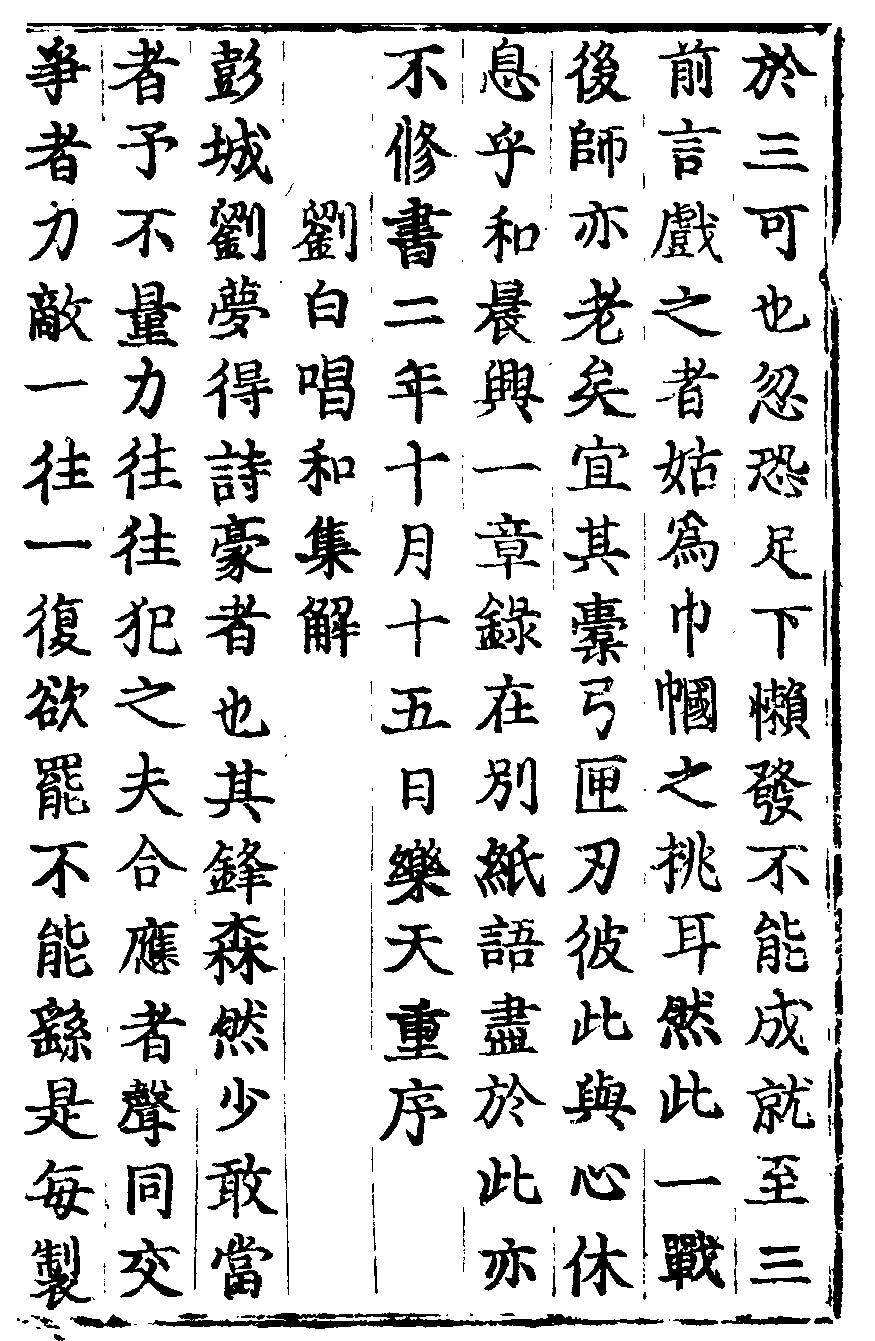 於三可也忽恐足下懶發不能成就至三
前言戲之者姑爲巾幗之挑耳然此一戰
後師亦老矣宜其櫜弓匣刃彼此與心休
息乎和晨興一章錄在別紙語盡於此亦
不修書二年十月十五日樂天重序
劉白唱和集解
彭城劉夢得詩豪者也其鋒森然少敢當
者予不量力往往犯之夫合應者聲同交
爭者力敵一往一復欲罷不能繇是每製